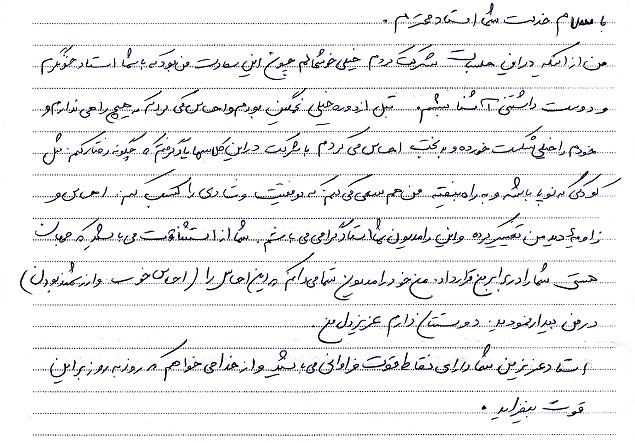 با سلام خدمت شما استاد محترم .
من از اینکه در این جلسات شرکت کردم خیلی خوشحالم چون این سعادت من بود که با شما استاد خونگرم
و دوست داشتنی آشنا بشم. قبل از دوره خیلی غمگین بودم و احساس می کردم که هیچ راهی ندارم و
خودم را خیلی شکست خورده و بدبخت احساس می کردم با شرکت در این کلاسها یاد گرفتم که چگونه رفتار کنم. مثل
کودکی که نوپا باشه و به راه بیفته من هم سعی می کنم. که موفقیت و شادی را کسب کنم. احساس و
زاویه دید من تغییر کرده و این را مدیون شما استاد گرامی می باشم. شما از استثنائات می باشید که جهان
هستی شما را در برابر من قرار داد. من خود را مدیون شما می دانم که این احساس را (احساس خوب و ارزشمند بودن)
در من بیدار نمودید. دوستتان دارم عزیز دل من.
استاد عزیز من شما دارای نقاط قوت فراوانی می باشید و از خدا می خواهم که روز به روز بر این
قوت بیفزاید .